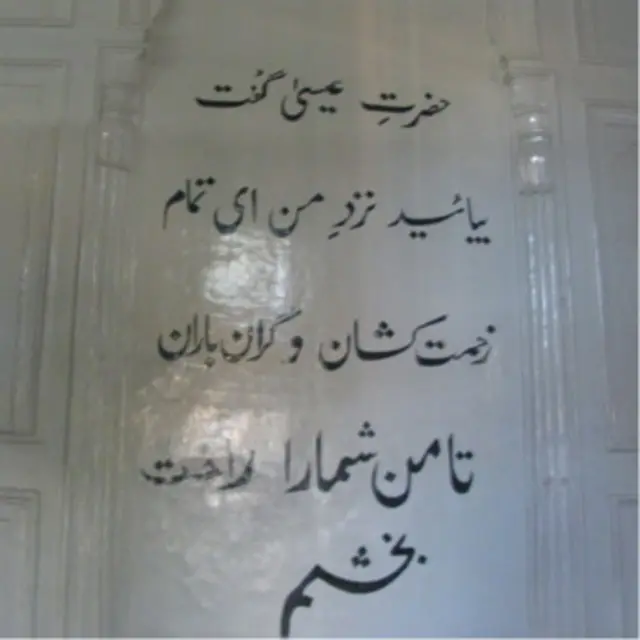 حضرتِ عیسیٰ گفت
بیائید نزدِ من ای تمام
زحمت کشان و گران باران
تا من شمارا راحت
بخشم